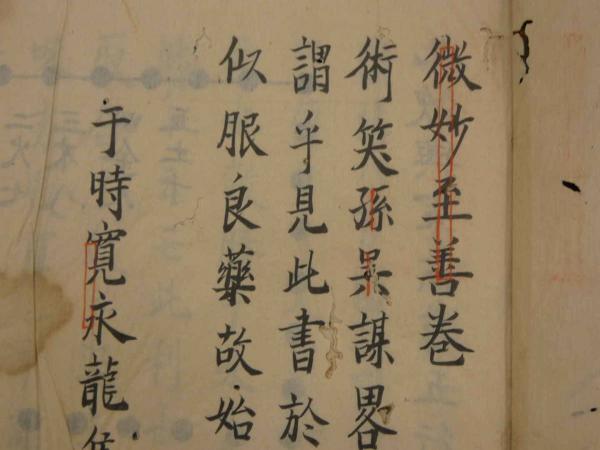 微妙至善巻
術笑孫呉謀畧
謂乎見此書於
似服良藥故始
于時寛永龍